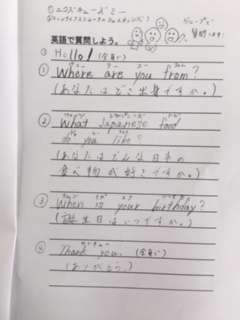 ①エクスキューズミー
グループで
質問します。
英語で質問しよう。
⓪Hello! (全員)
① Where are you from?
(あなたはどこ出身ですか。)
② What Japanese food
do you like?
(あなたはどんな日本の
食べ物が好きですか。)
③ When is your birthday?
(誕生日はいつですか。)
④ Thank you. (全員)
(ありがとう。)